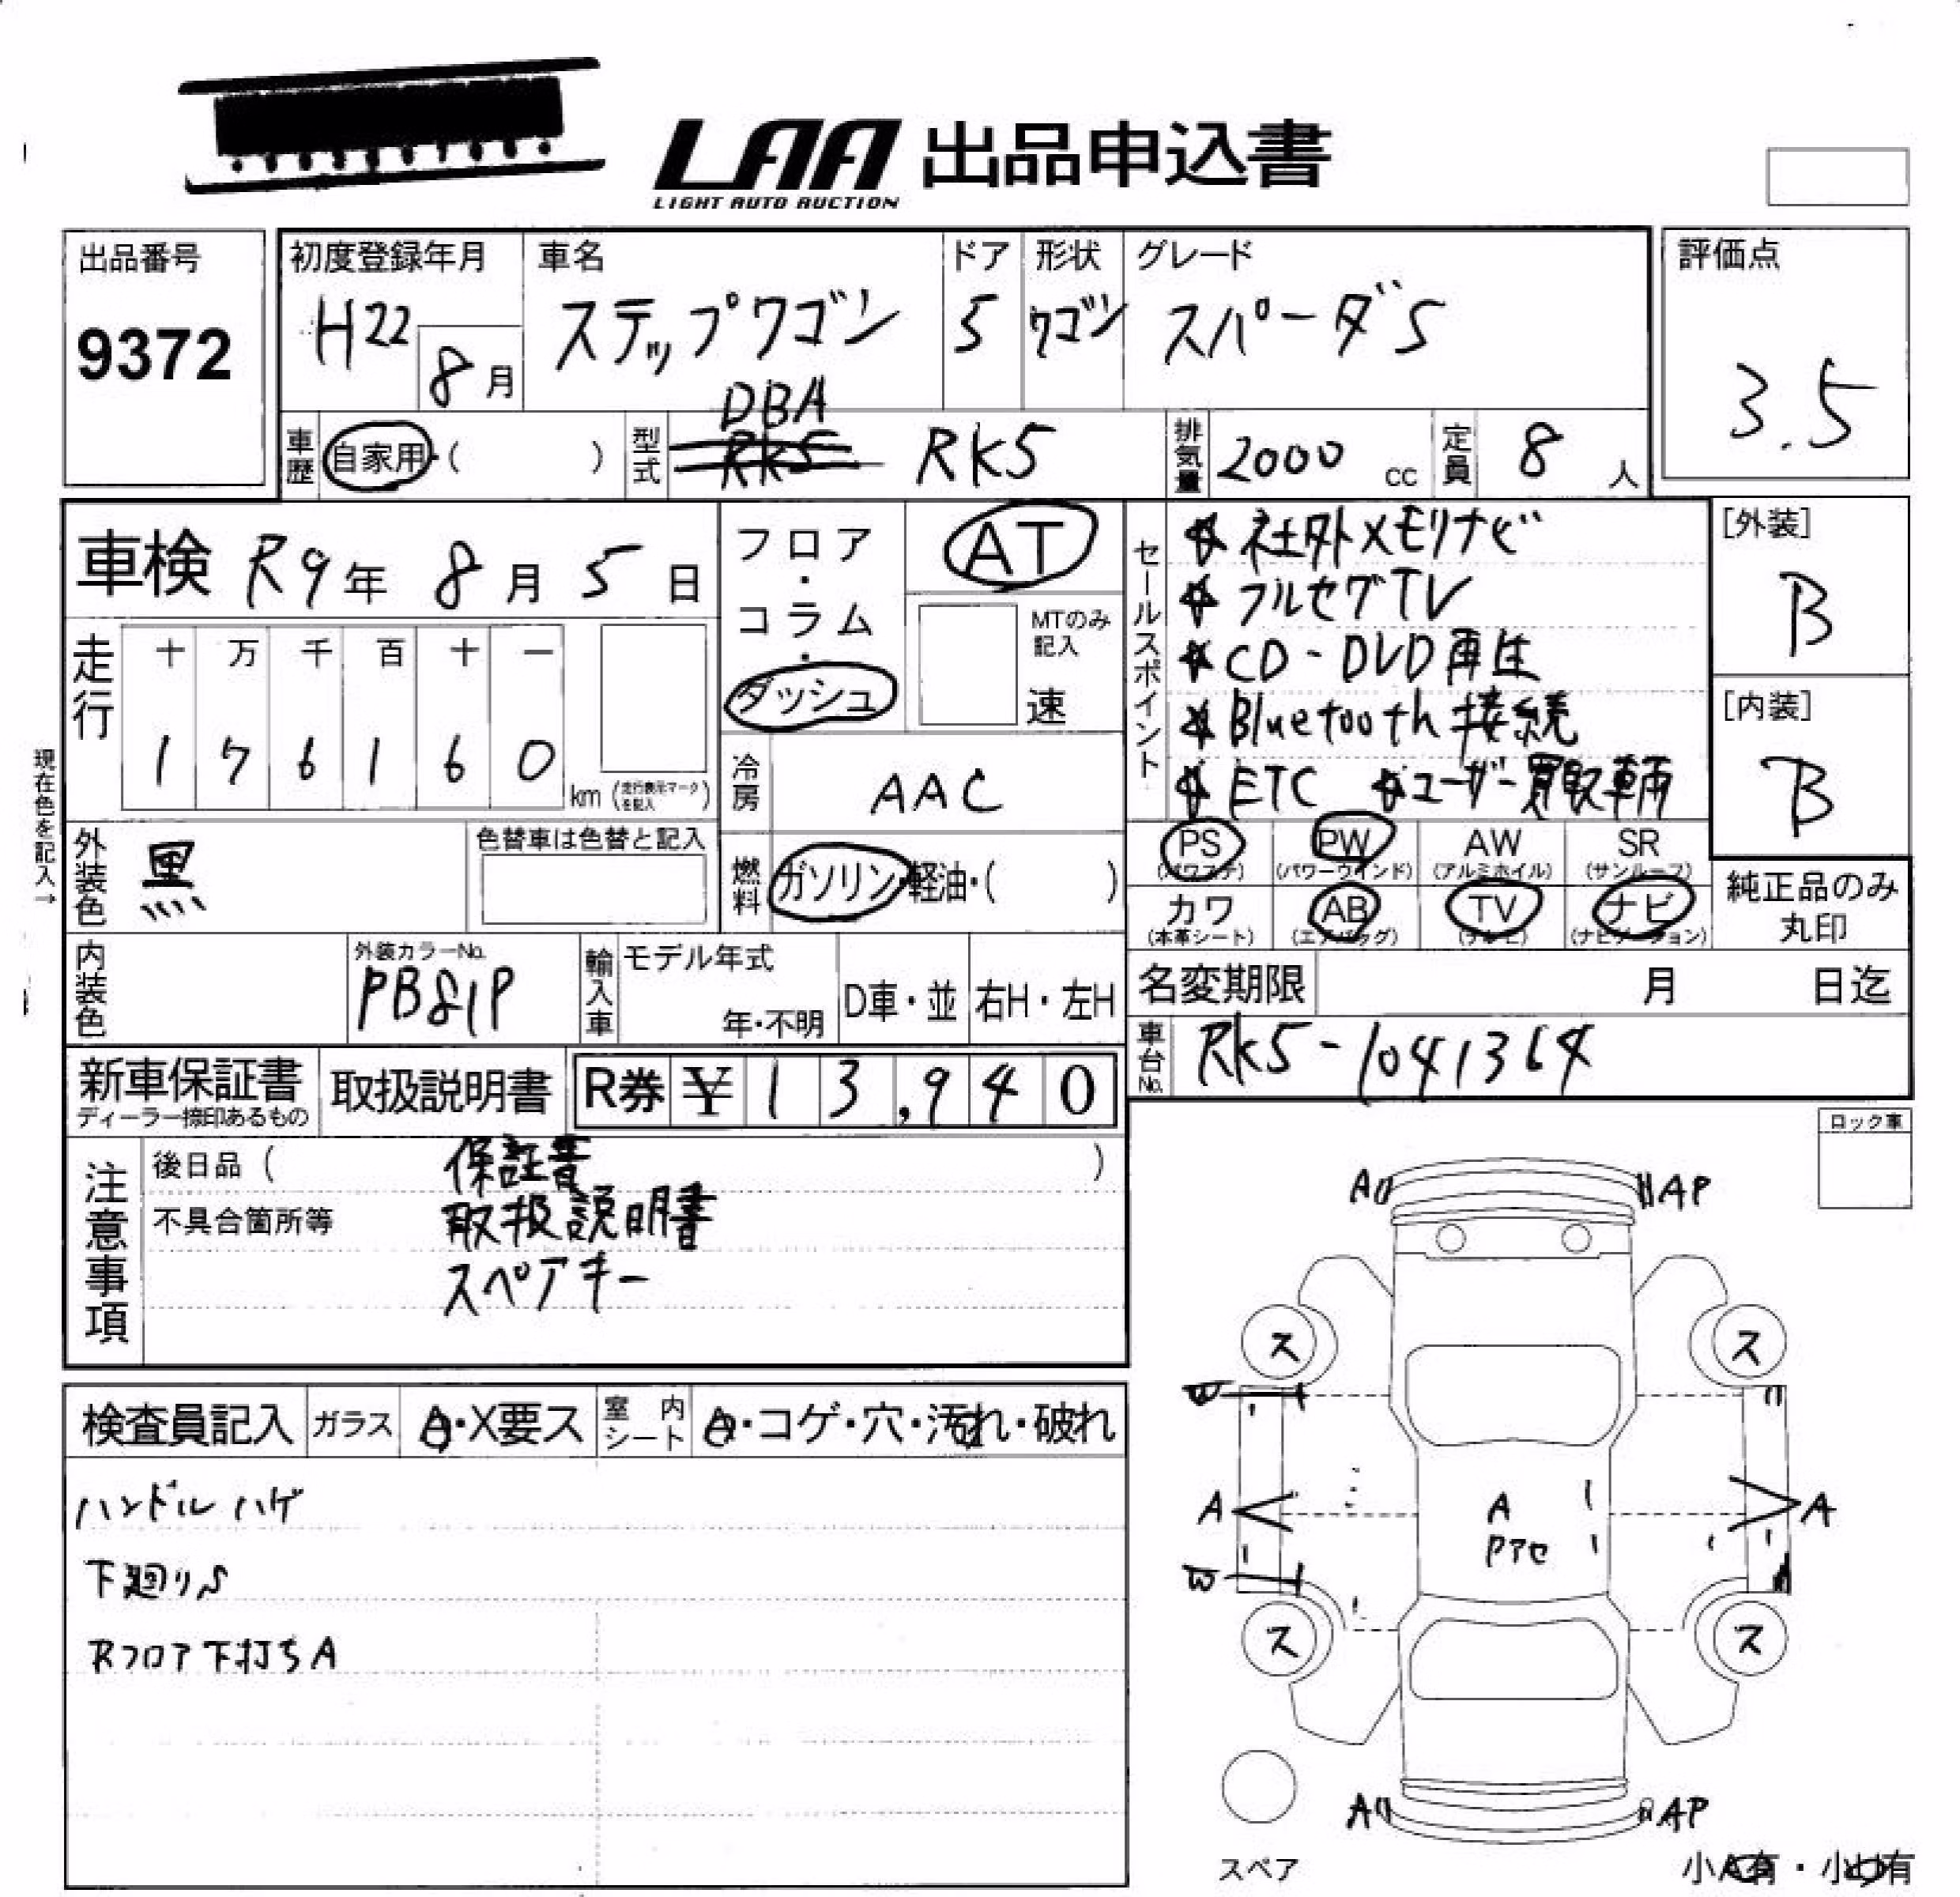 LAA 出品申込書
LIGHT AUTO AUCTION
出品番号
9372
初度登録年月
H22
8月
車名
ステップワゴン
ドア
5
形状
ワゴン
グレード
スパーダS
評価点
3.5
車歴
自家用・( )
型式
DBA
RK5 RK5
排気量
2000 cc
定員
8 人
車検 R9年 8月 5日
走行
十 万 千 百 十 一
1 7 6 1 6 0
km (走行表示マークを記入)
現在色を記入→
外装色
黒
色替車は色替と記入
内装色
外装カラーNo.
PB81P
フロア
・
コラム
・
ダッシュ
AT
MTのみ
記入
速
冷房
AAC
燃料
ガソリン・軽油・( )
輸入車
モデル年式
年・不明
D車・並
右H・左H
セールスポイント
☆社外メモリナビ
☆フルセグTV
☆CD-DVD再生
☆Bluetooth接続
☆ETC ☆ユーザー買取車輌
[外装]
B
[内装]
B
PS
(パワステ)
PW
(パワーウインド)
AW
(アルミホイル)
SR
(サンルーフ)
カワ
(本革シート)
AB
(エアバッグ)
TV
(テレビ)
ナビ
(ナビゲーション)
純正品のみ
丸印
名変期限 月 日迄
車台No.
RK5-1041364
新車保証書
ディーラー捺印あるもの
取扱説明書
R券 ¥13,940
注意事項
後日品 ( 保証書 )
不具合箇所等 取扱説明書
スペアキー
ロック車
検査員記入
ガラス
A・X要ス
室内シート
A・コゲ・穴・汚れ・破れ
ハンドルハゲ
下廻りS
Rフロア下打ちA
A
AP
ス
ス
W
A
A
Pアセ
A
W
ス
ス
A
AP
スペア
小A有・小U有